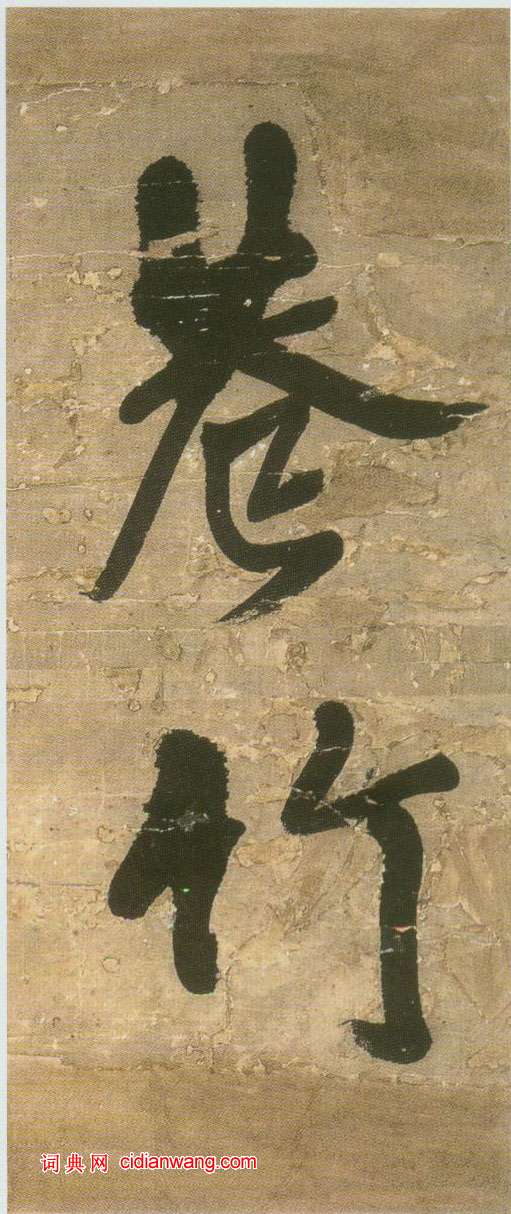 養竹
词典网 cidianwang.com